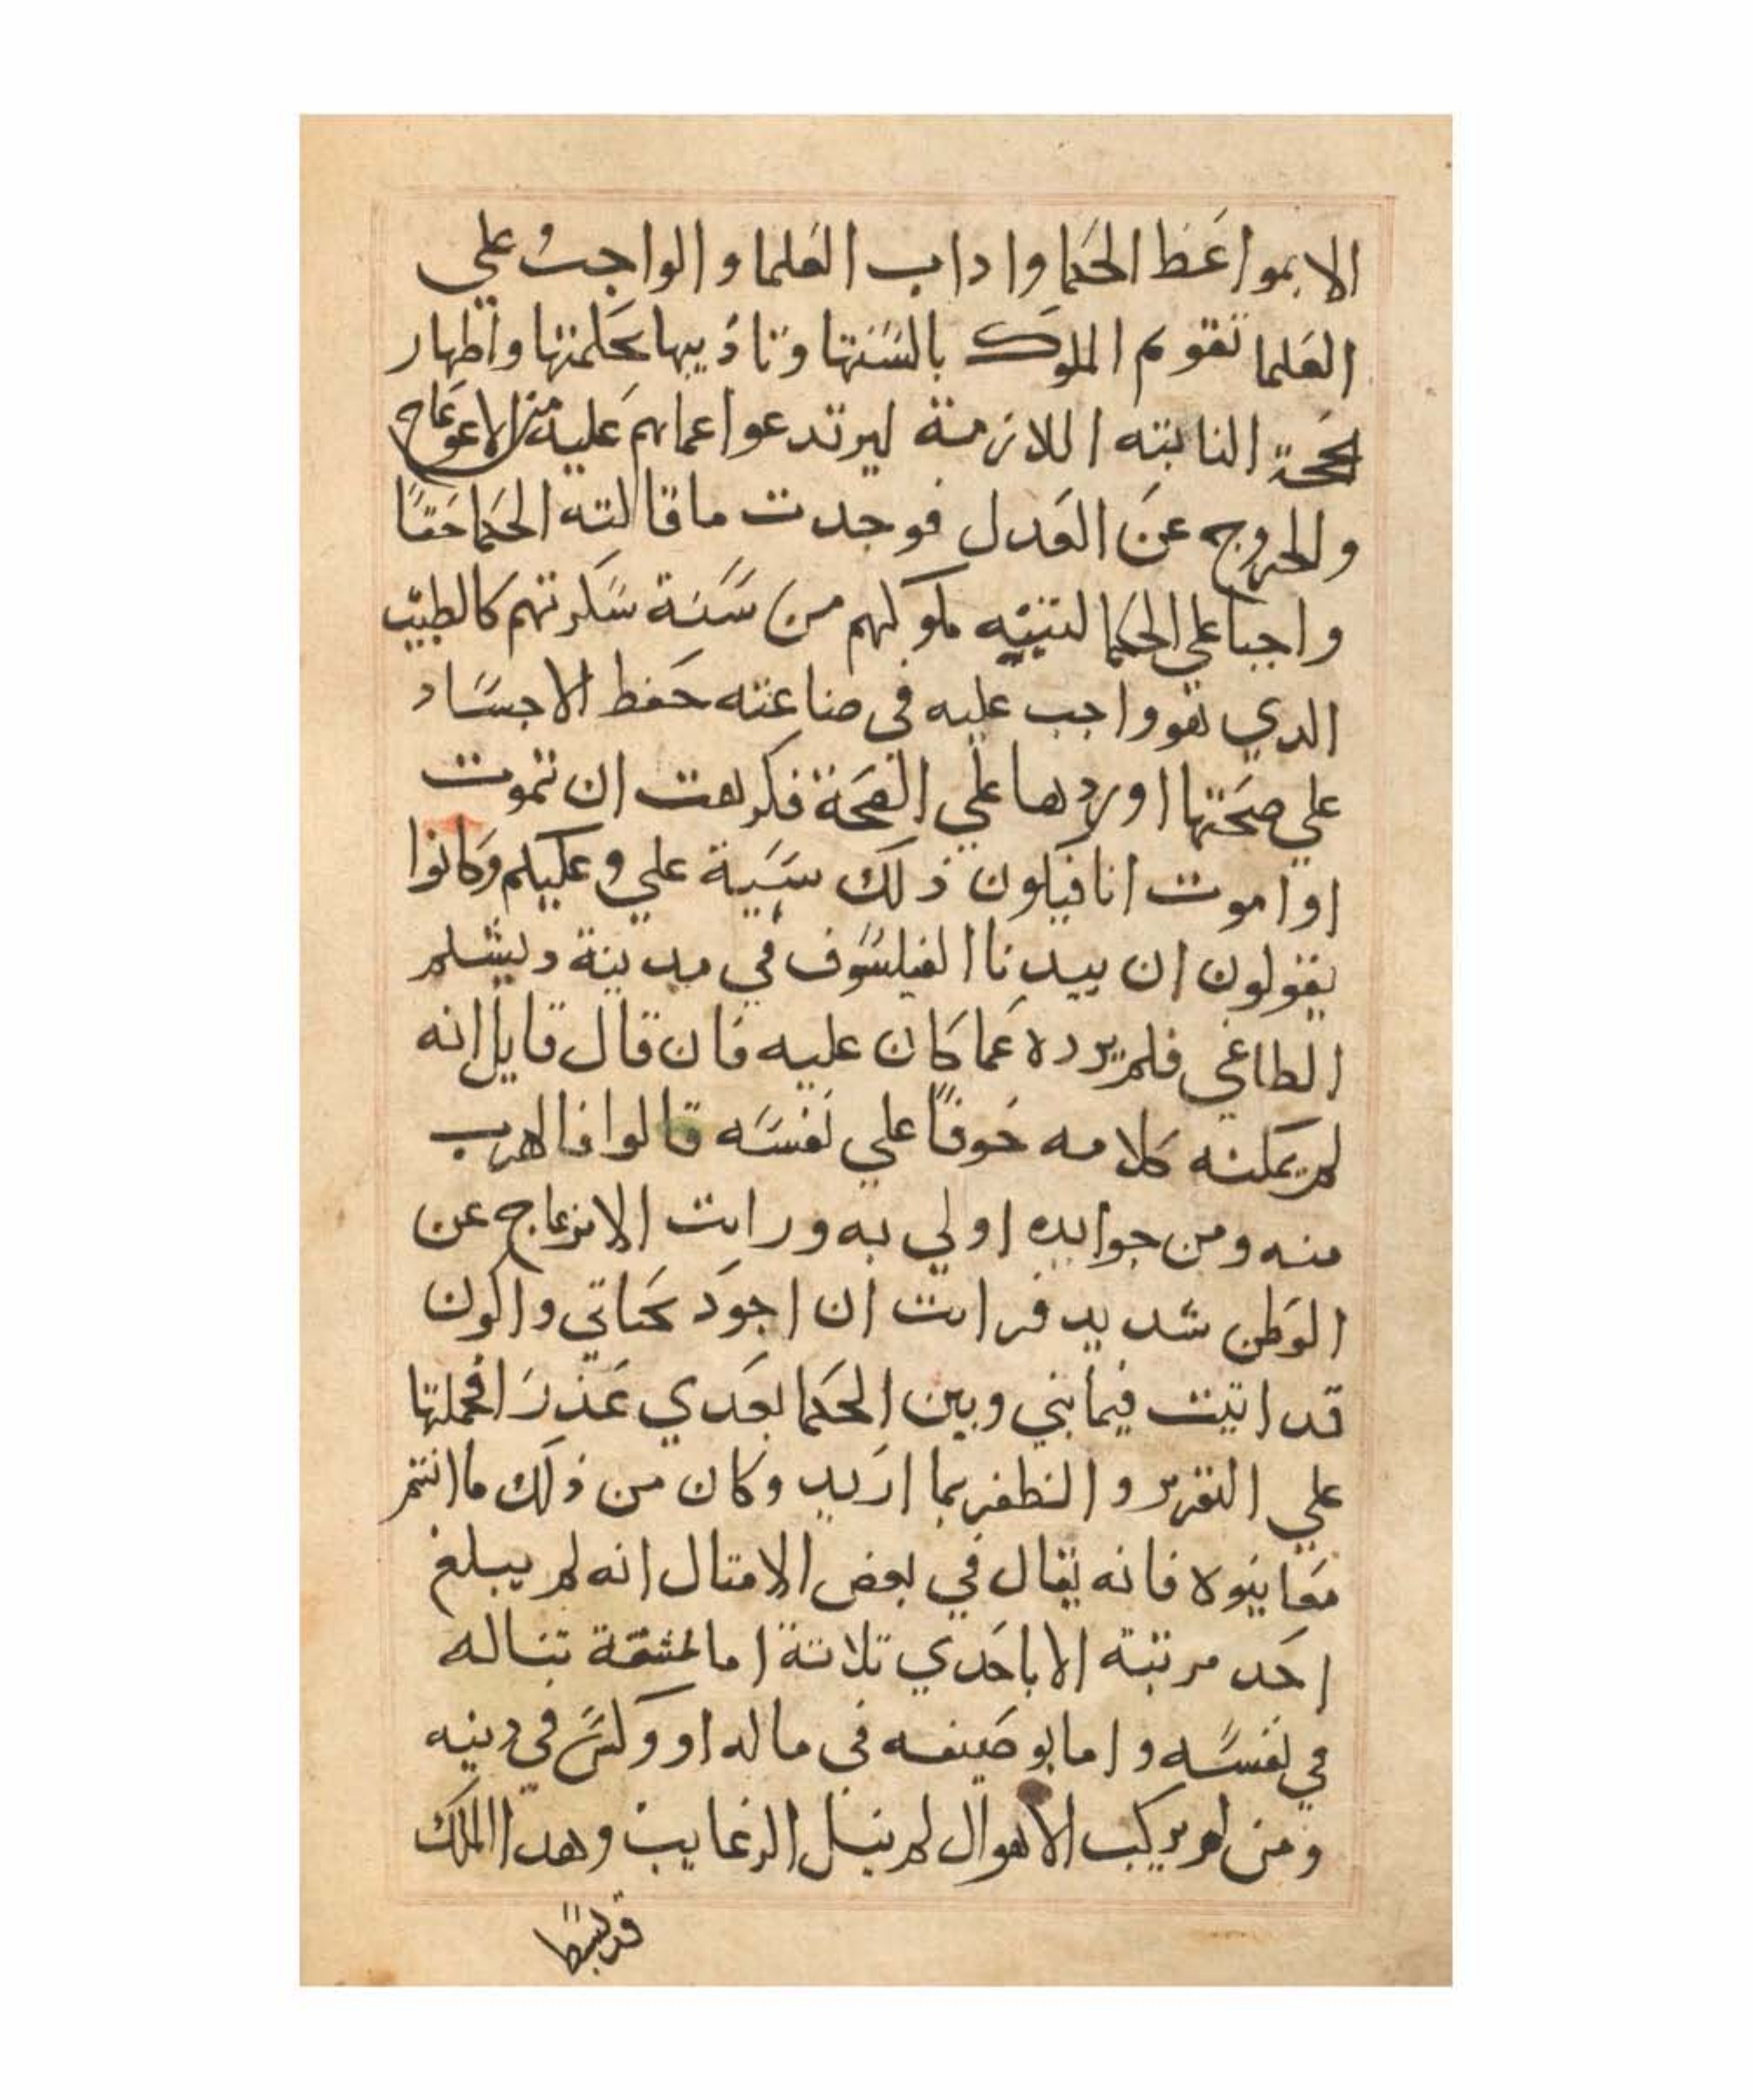 الا بمواعظ الحكما واداب العلما والواجب علي
العلما تقويم الملوك بالسنتها وتاديبها بحكمتها واظهار
الحجة النابته اللازمة ليرتدعوا عماهم عليه من الاعوعاج
والخروج عن العدل فوجدت ما قالته الحكما حقًا
واجبا علي الحكما لتنبيه ملوكهم من سنة سكرتهم كالطبيب
الدي هو واجب عليه في صناعته حفظ الاجساد
علي صحتها او ردها علي الصحة فكرهت ان تموت
او اموت انا فيكون ذلك سبية علي وعليكم وكانوا
يقولون ان بيدنا الفيلسوف في مدينة دبشلم
الطاغي فلم يرده عما كان عليه فان قال قايل انه
لم يمكنه كلامه خوفًا علي نفسه قالوا فالهرب
منه ومن جواره اولي به ورايت الانزعاج عن
الوطن شديد فرايت ان اجود بحياتي واكون
قد اتيت فيما بيني وبين الحكما بعدي عذرا فحملتها
علي التغرير والظفر بما اريد وكان من ذلك ما انتم
معاينوه فانه يقال في بعض الامتال انه لم يبلغ
احد مرتبة الا باحدي تلاتة اما بمشقة تناله
في نفسه واما بوضيفه في ماله او وكس في دينه
ومن لم يركب الاهوال لم ينيل الرغايب وهدا الملك